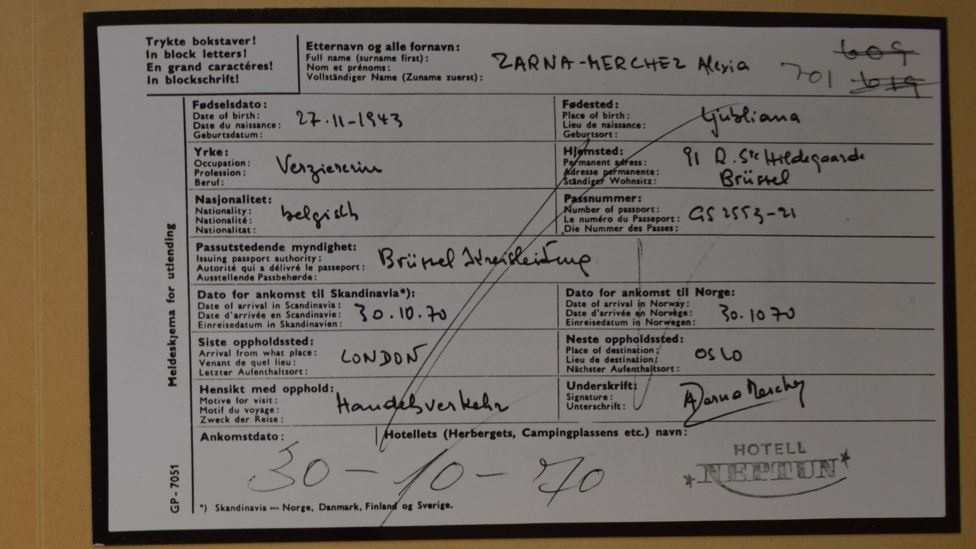 Trykte bokstaver!
In block letters!
En grand caractéres!
In blockschrift!
Etternavn og alle fornavn:
Full name (surname first):
Nom et prénoms:
Vollständiger Name (Zuname zuerst):
ZARNA-MERCHEZ Alexia
701
609
619
Fødselsdato:
Date of birth:
Date du naissance:
Geburtsdatum:
27.11-1943
Fødested:
Place of birth:
Lieu de naissance:
Geburtsort:
Ljubliana
Yrke:
Occupation:
Profession:
Beruf:
Verziererin
Hjemsted:
Permanent adress:
Adresse permanente:
Ständiger Wohnsitz:
91 R. Ste Hildegaarde
Brüssel
Nasjonalitet:
Nationality:
Nationalité:
Nationalitat:
belgisch
Passnummer:
Number of passport:
Le numéro du Passeport:
Die Nummer des Passes:
GS 2553-21
Passutstedende myndighet:
Issuing passport authority:
Autorité qui a délivré le passeport:
Ausstellende Passbehørde:
Brüssel Kreisleitung
Dato for ankomst til Skandinavia*):
Date of arrival in Scandinavia:
Date d'arrivée en Scandinavie:
Einreisedatum in Skandinavien:
30.10.70
Dato for ankomst til Norge:
Date of arrival in Norway:
Date d'arrivée en Norvège:
Einreisedatum in Norwegen:
30.10 70
Siste oppholdssted:
Arrival from what place:
Venant de quel lieu:
Letzter Aufenthaltsort:
LONDON
Neste oppholdssted:
Place of destination:
Lieu de destination:
Nächster Aufenthaltsort:
OSLO
Hensikt med opphold:
Motive for visit:
Motif du voyage:
Zweck der Reise:
Handelsverkehr
Underskrift:
Signature:
Unterschrift:
AZarna Merchez
Ankomstdato:
30-10-70
Hotellets (Herbergets, Campingplassens etc.) navn:
HOTELL
*NEPTUN*
*) Skandinavia = Norge, Danmark, Finland og Sverige.
Meldeskjema for utlending
GP-7051